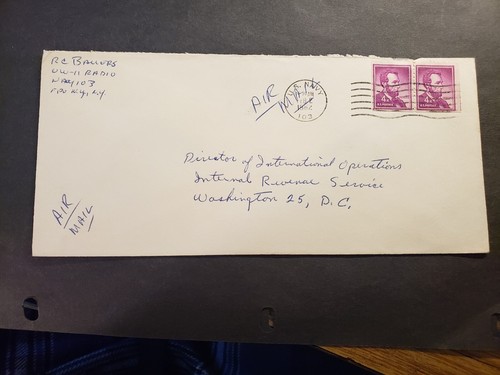 RC Bauers
UW-11 RADIO
NAVY 103
FPO N.Y., N.Y.
AIR
MAIL
U.S. NAVY
1962
103
Director of International Operations
Internal Revenue Service
Washington 25, D.C.
AIR
MAIL